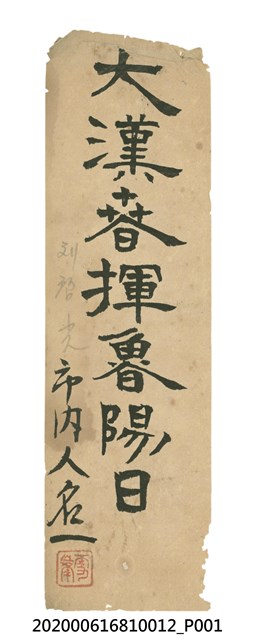 大漢春揮魯陽日
刘啓光
市內人名一
202000616810012_P001